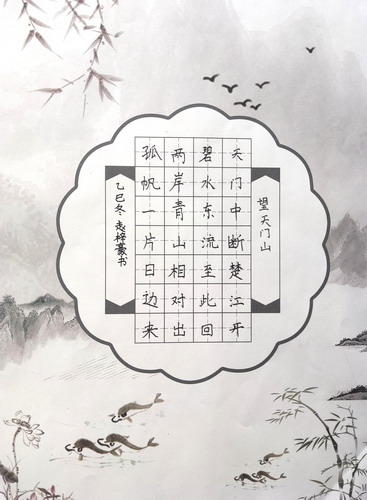 望天门山
天门中断楚江开
碧水东流至此回
两岸青山相对出
孤帆一片日边来
乙巳冬 志梓蒙书